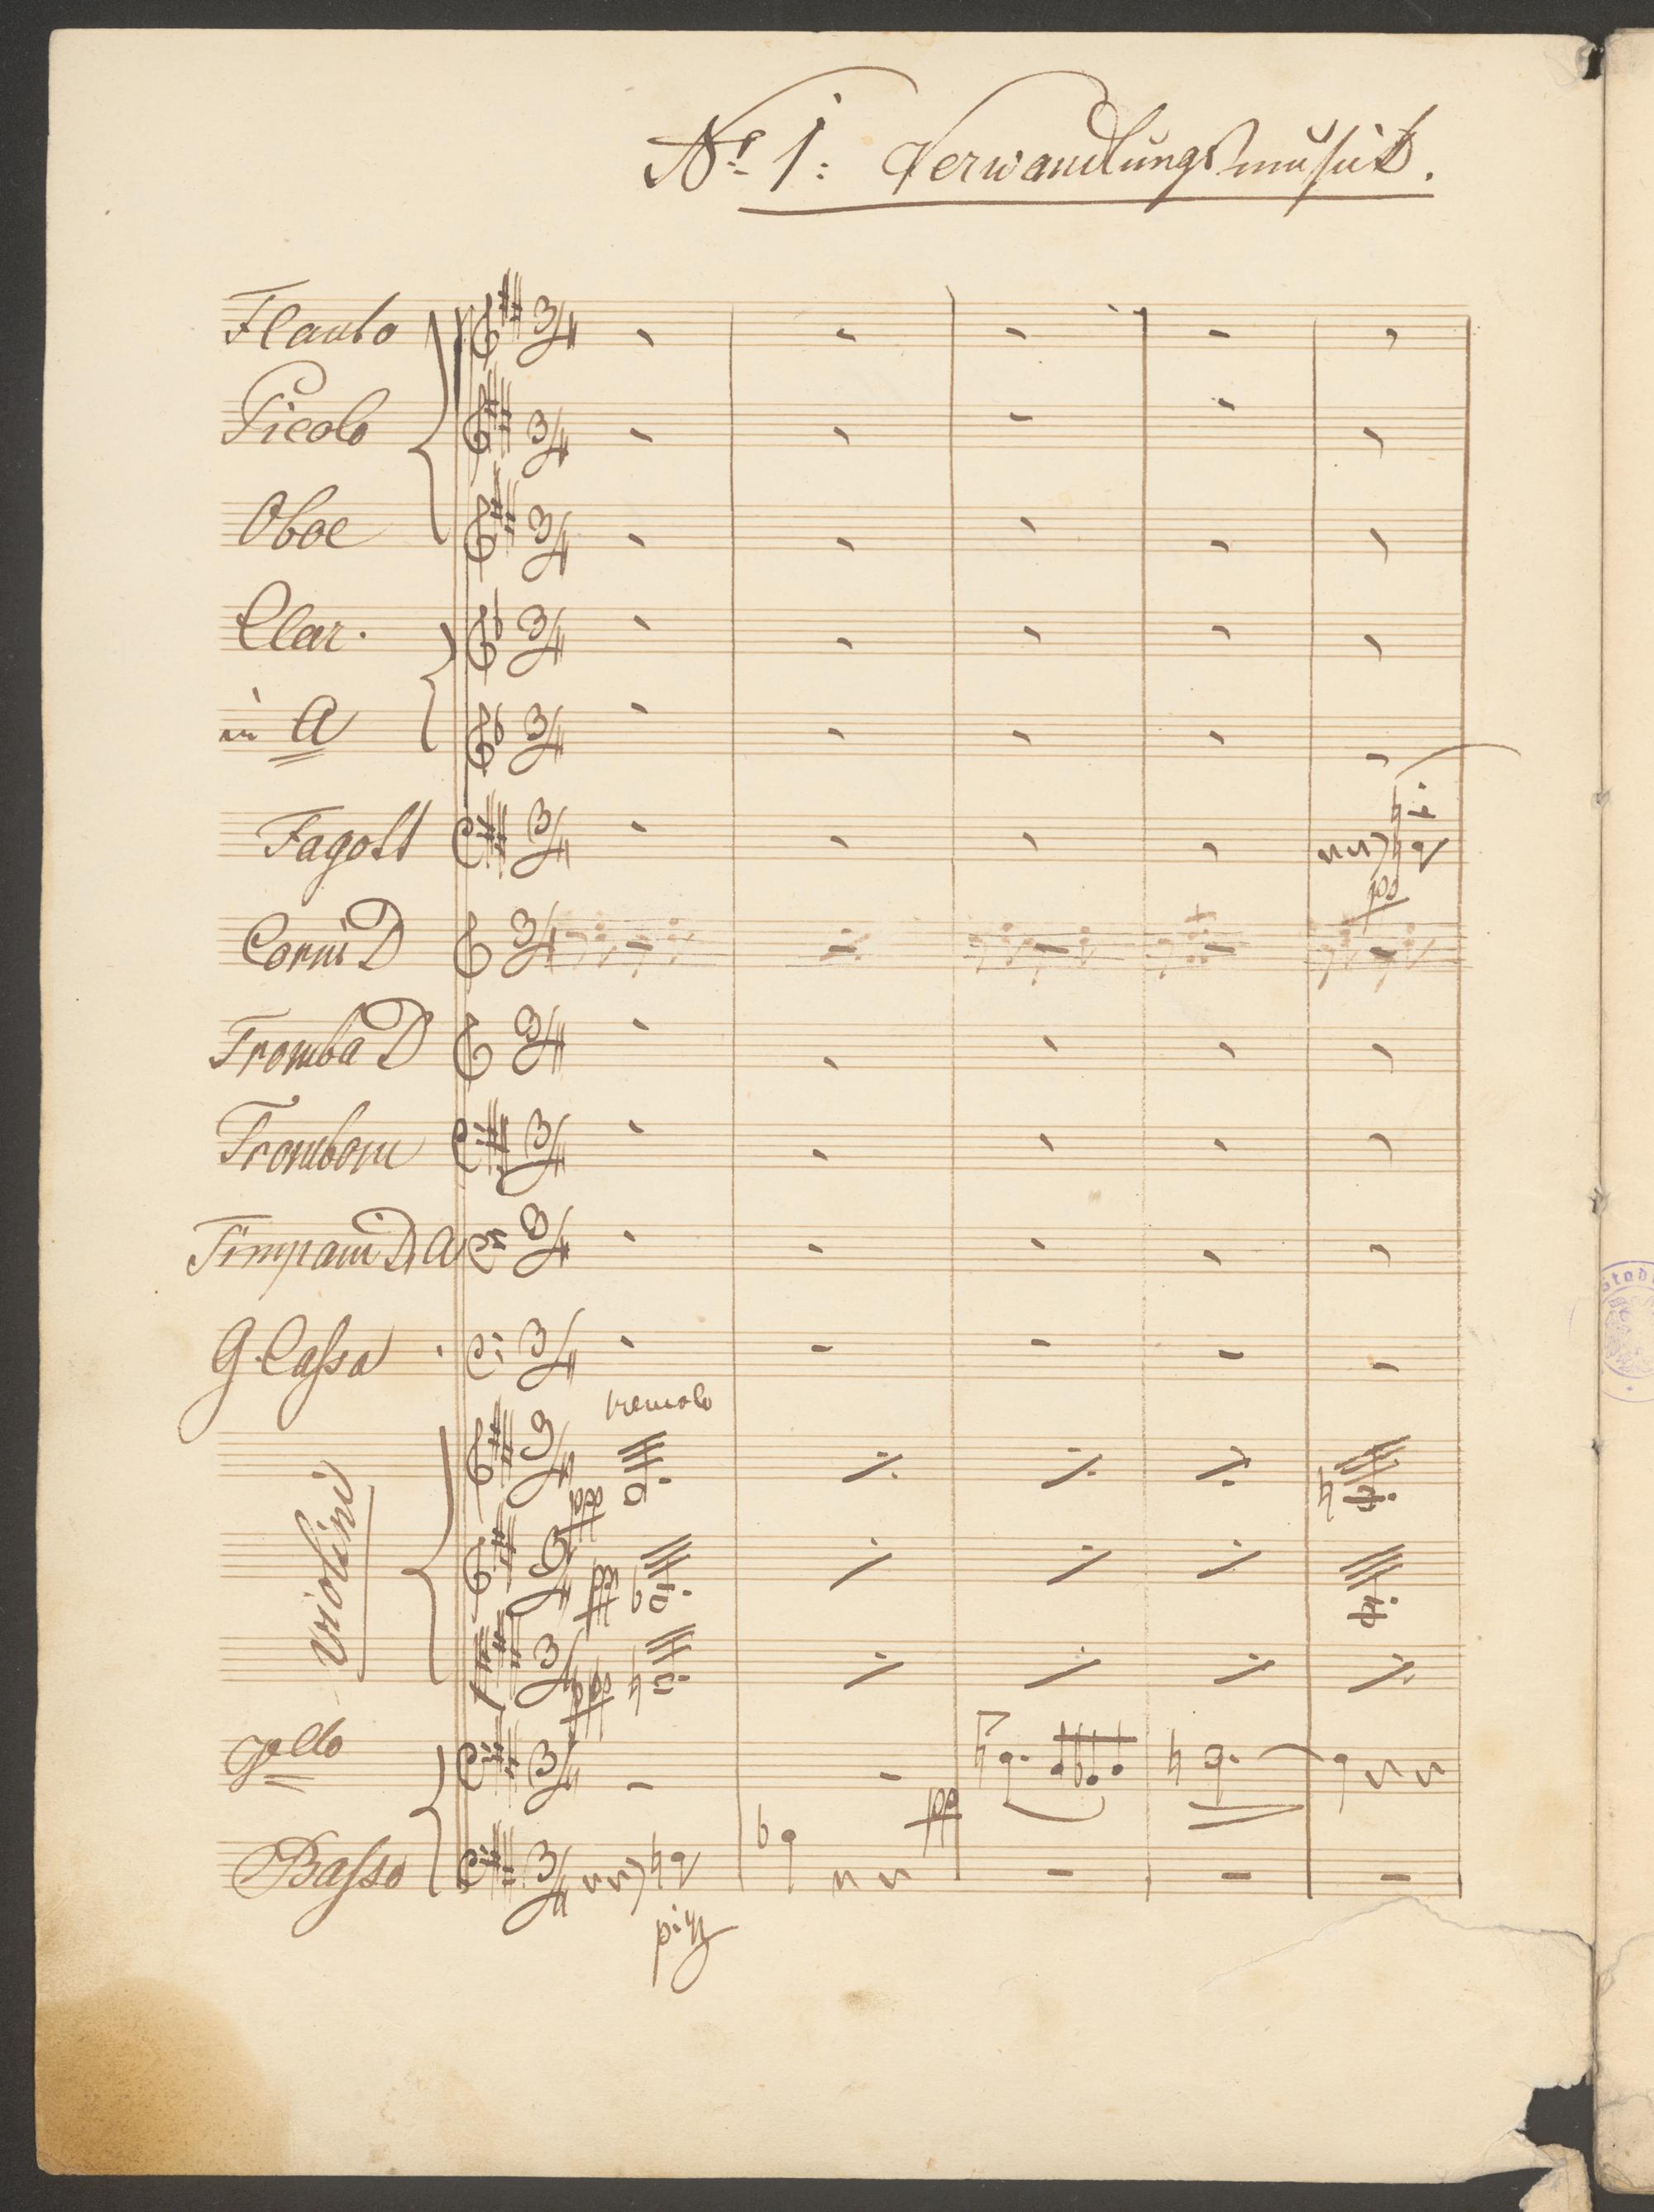 No. 1: Verwandlungsmusik.
Flauto
Picolo
Oboe
Clar.
in A
Fagott
pp
Corni D
Tromba D
Tromboni
Timpani D, A
G. Cassa
tremolo
Violini
ppp
ppp
ppp
Cello
pp
Basso
pizz